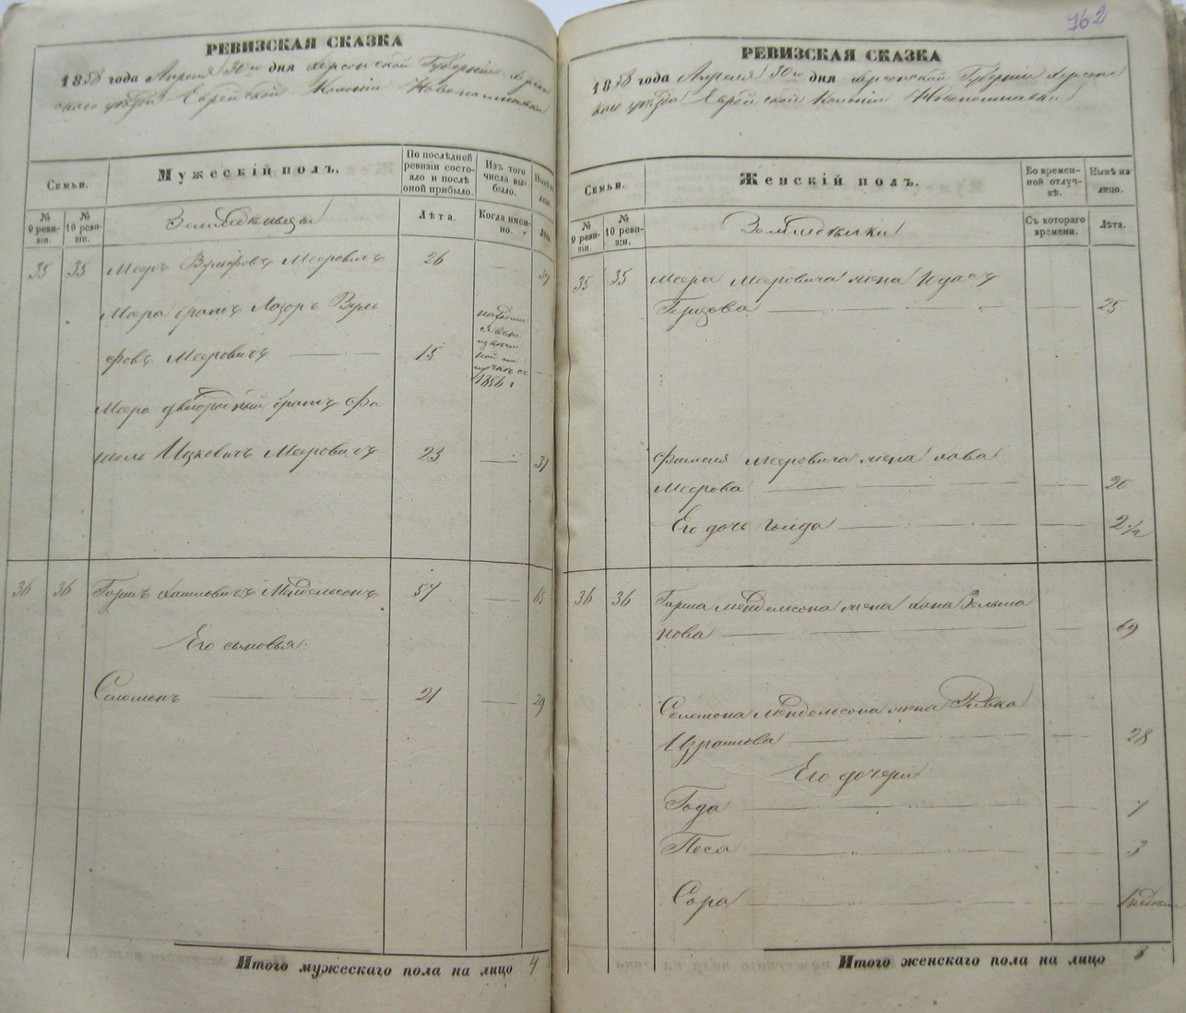 РЕВИЗСКАЯ СКАЗКА
1858 года Апреля 30го дня Херсонской Губерніи Херсон
скаго уезда Еврейской Колоніи Новополтавки
Семьи.
№ 9 ревизіи.
№ 10 ревизіи.
Мужескій полъ.
По послѣдней ревизіи состояло и послѣ оной прибыло.
Изъ того числа выбыло.
Нынѣ на лицо.
Земледельцы
Лѣта.
Когда именно.
Лѣта.
35 35 Мееръ Вульфовъ Мееровичъ 26 —
Меера братъ Лазарь Вуль
фовъ Мееровичъ — 15
1856 г
Меера двоюродный братъ Фи
шель Ицковичъ Мееровичъ 23 — 31
36 36 Гиршъ Мендельсонъ 57 — 65
Его сыновья:
Соломонъ — 21 — 29
Итого мужескаго пола на лицо 4
162
РЕВИЗСКАЯ СКАЗКА
1858 года Апреля 30го дня Херсонской Губерніи Херсон
скаго уезда Еврейской Колоніи Новополтавки
Семьи.
№ 9 ревизіи.
№ 10 ревизіи.
Женскій полъ.
Во временной отлучкѣ.
Нынѣ на лицо.
Земледелки
Съ котораго времени.
Лѣта.
35 35 Меера Мееровича жена
— 25
Фишеля Мееровича жена Хава
Меерова — 20
Его дочь Голда — 2 1/2
36 36 Гирша Мендельсона жена Хана Зельма
нова — 69
Соломона Мендельсона жена Ривка
Израилева — 28
Его дочери
Года — 7
Песа — 3
Сора —
Итого женскаго пола на лицо